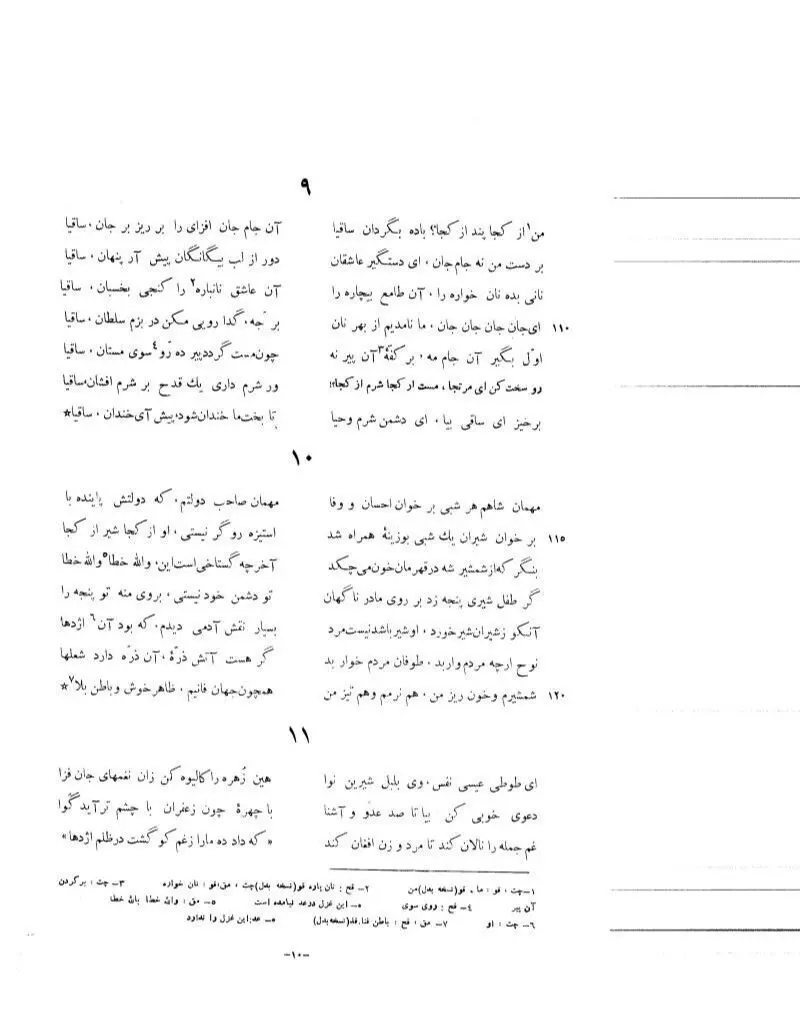 ۹
من۱ از کجا پند از کجا؟ باده بگردان ساقیا آن جام جان افزای را بر ریز بر جان، ساقیا
بر دست من نه جام جان، ای دستگیر عاشقان دور از لب بیگانگان پیش آر پنهان، ساقیا
نانی بده نان خواره را، آن طامع بیچاره را آن عاشق نانباره۲ را کنجی بخسبان، ساقیا
۱۱۰ ای جان جان جان جان، ما نامدیم از بهر نان بر جه، گدا رویی مکن در بزم سلطان، ساقیا
اوّل بگیر آن جام مه، بر کفّهٔ۳ آن پیر نه چون مست گردد پیر ده رَو۴ سوی مستان، ساقیا
رو سخت کن ای مرتجا، مست از کجا شرم از کجا؟! ور شرم داری یك قدح بر شرم افشان ساقیا
برخیز ای ساقی بیا، ای دشمن شرم وحیا تا بخت ما خندان شود، پیش آی خندان، ساقیا*
۱۰
مهمان شاهم هر شبی بر خوان احسان و وفا مهمان صاحب دولتم، که دولتش پاینده با
۱۱۵ بر خوان شیران یك شبی بوزینهٔ همراه شد استیزه رو گر نیستی، او از کجا شیر از کجا
بنگر که از شمشیر شه در قهرمان خون می‌چکد آخر چه گستاخی است این، والله خطا۵ والله خطا
گر طفل شیری پنجه زد بر روی مادر ناگهان تو دشمن خود نیستی، بروی منه تو پنجه را
آنکو ز شیران شیر خورد، او شیر باشد نیست مرد بسیار نقش آدمی دیدم، که بود آن۶ اژدها
نوح ارچه مردم وار بد، طوفان مردم خوار بد گر هست آتش ذرّهٔ، آن ذرّه دارد شعلها
۱۲۰ شمشیرم وخون ریز من، هم نرمم وهم تیز من همچون جهان فانیم، ظاهر خوش و باطن بلا۷*
۱۱
ای طوطی عیسی نفس، وی بلبل شیرین نوا هین زُهره را کالیوه کن زان نغمهای جان فزا
دعوی خوبی کن بیا تا صد عدوّ و آشنا با چهرهٔ چون زعفران با چشم تر آید گوا
غم جمله را نالان کند تا مرد و زن افغان کند «که داد ده ما را زغم کو گشت در ظلم اژدها»
۱ـ چت، فو: ما. قو(نسخه بدل)من ۲ـ فح: نان پاره قو(نسخه بدل)چت، مق،فو: نان خواره ۳ـ چت: بر گردن
آن پیر ۴ـ فح: روی سوی ٭ـ این غزل درعد نیامده است ۵ـ مق: والله خطا بالله خطا
۶ـ چت: او ۷ـ مق، فح: باطن فنا. فذ(نسخه بدل) ٭ـ عد:این غزل را ندارد
ـ۱۰ـ